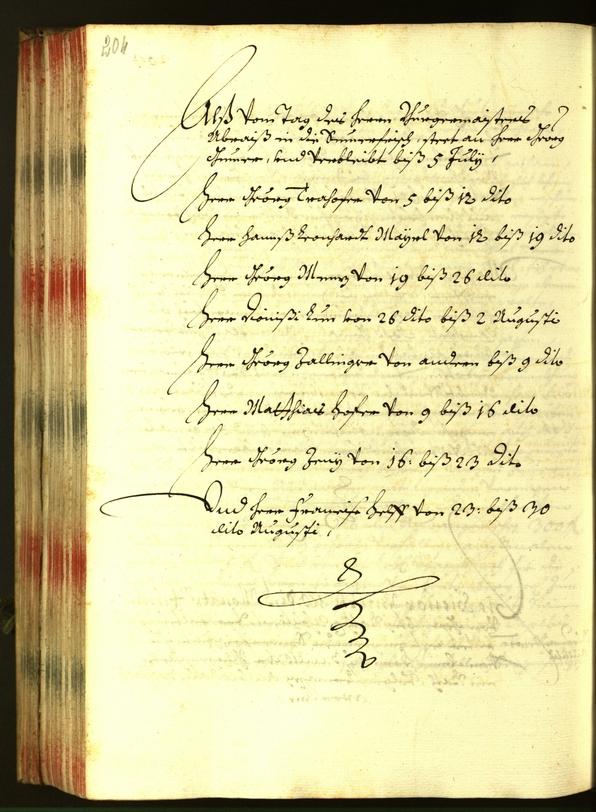 204
Alß vom Tag des Herrn Burgermaisters
Abraiß in die Saurerfrisch, steet an Herr Georg
und verbleibt biß 5 July,
Herr Georg Trahofer von 5 biß 12 dito
Herr Hannß Leonhardt Mayrl von 12 biß 19 dito
Herr Georg Menz von 19 biß 26 dito
Herr Dionisi von 26 dito biß 2 Augusti
Herr Georg Zallinger von andern biß 9 dito
Herr Matthias Hofer von 9 biß 16 dito
Herr Georg Jenij von 16: biß 23 dito
Und Herr Francisc Helff von 23: biß 30
dito Augusti,